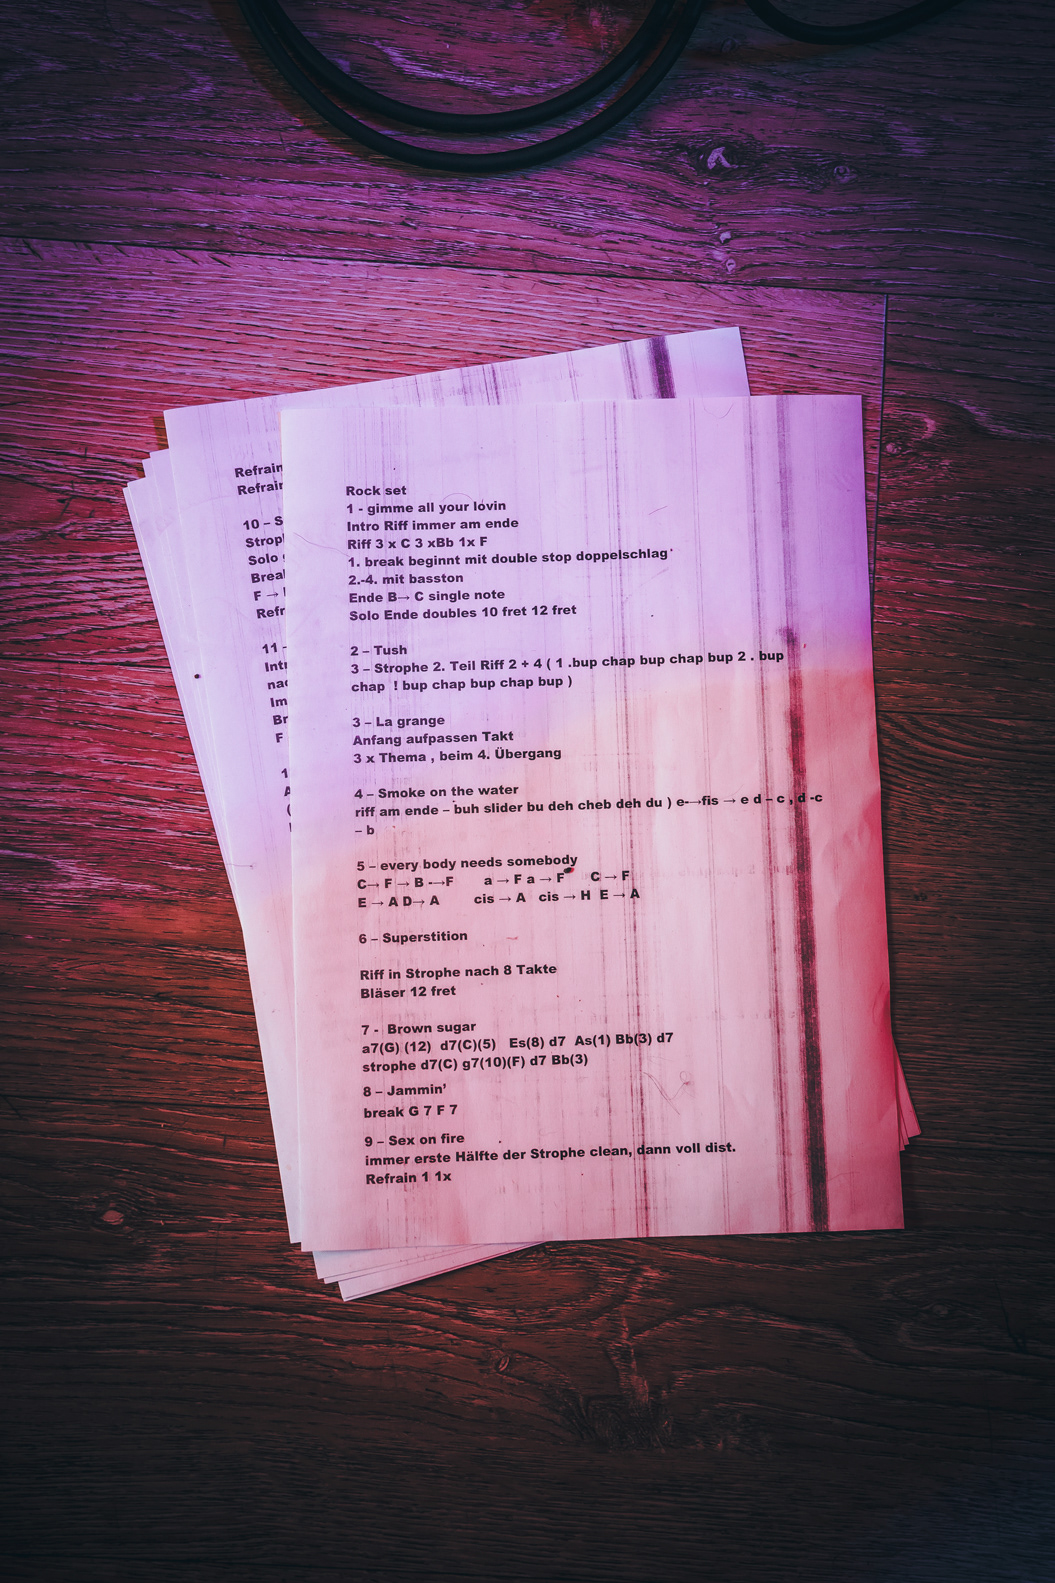 Rock set
1 - gimme all your lovin
Intro Riff immer am ende
Riff 3 x C 3 xBb 1x F
1. break beginnt mit double stop doppelschlag
2.-4. mit basston
Ende B→ C single note
Solo Ende doubles 10 fret 12 fret
2 – Tush
3 – Strophe 2. Teil Riff 2 + 4 ( 1 .bup chap bup chap bup 2 . bup
chap ! bup chap bup chap bup )
3 – La grange
Anfang aufpassen Takt
3 x Thema , beim 4. Übergang
4 – Smoke on the water
riff am ende – buh slider bu deh cheb deh du ) e-→fis → e d – c , d -c
– b
5 – every body needs somebody
C→ F → B -→F a → F a → F C → F
E → A D→ A cis → A cis → H E → A
6 – Superstition
Riff in Strophe nach 8 Takte
Bläser 12 fret
7 - Brown sugar
a7(G) (12) d7(C)(5) Es(8) d7 As(1) Bb(3) d7
strophe d7(C) g7(10)(F) d7 Bb(3)
8 – Jammin’
break G 7 F 7
9 – Sex on fire
immer erste Hälfte der Strophe clean, dann voll dist.
Refrain 1 1x
Refrain
Refrain
10 – S
Strop
Solo
Brea
F →
Refr
11 -
Int
nac
Im
Br
F
1